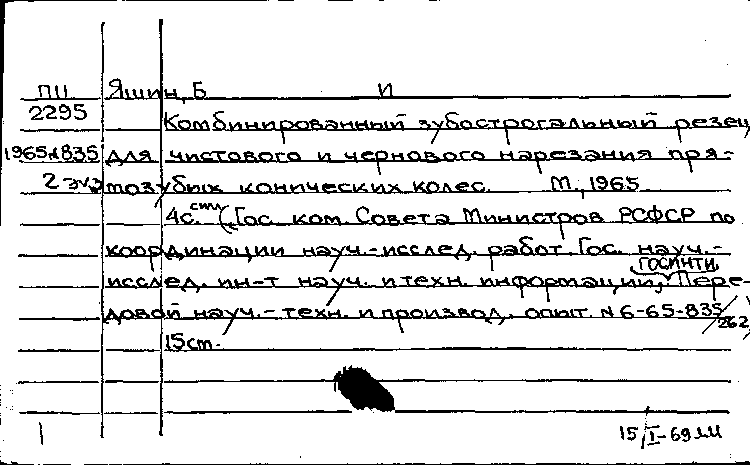 ПП Яшин, Б И
2295 Комбинированный зубострогальный резец
1965 835 для чистового и чернового нарезания пря-
2 экз мозубых конических колес. М., 1965
4с. силл (Гос. ком. Совета Министров РСФСР по
координации науч.-исслед. работ. Гос. науч.-
исслед. ин-т науч. и техн. информации, ГОСИНТИ, Пере-
довой науч.-техн. и производ. опыт. N 6-65-835/262)
15 cm.
1 15/I-69